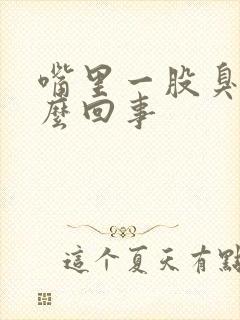 嘴里一股臭
麼回事
這个夏天有點